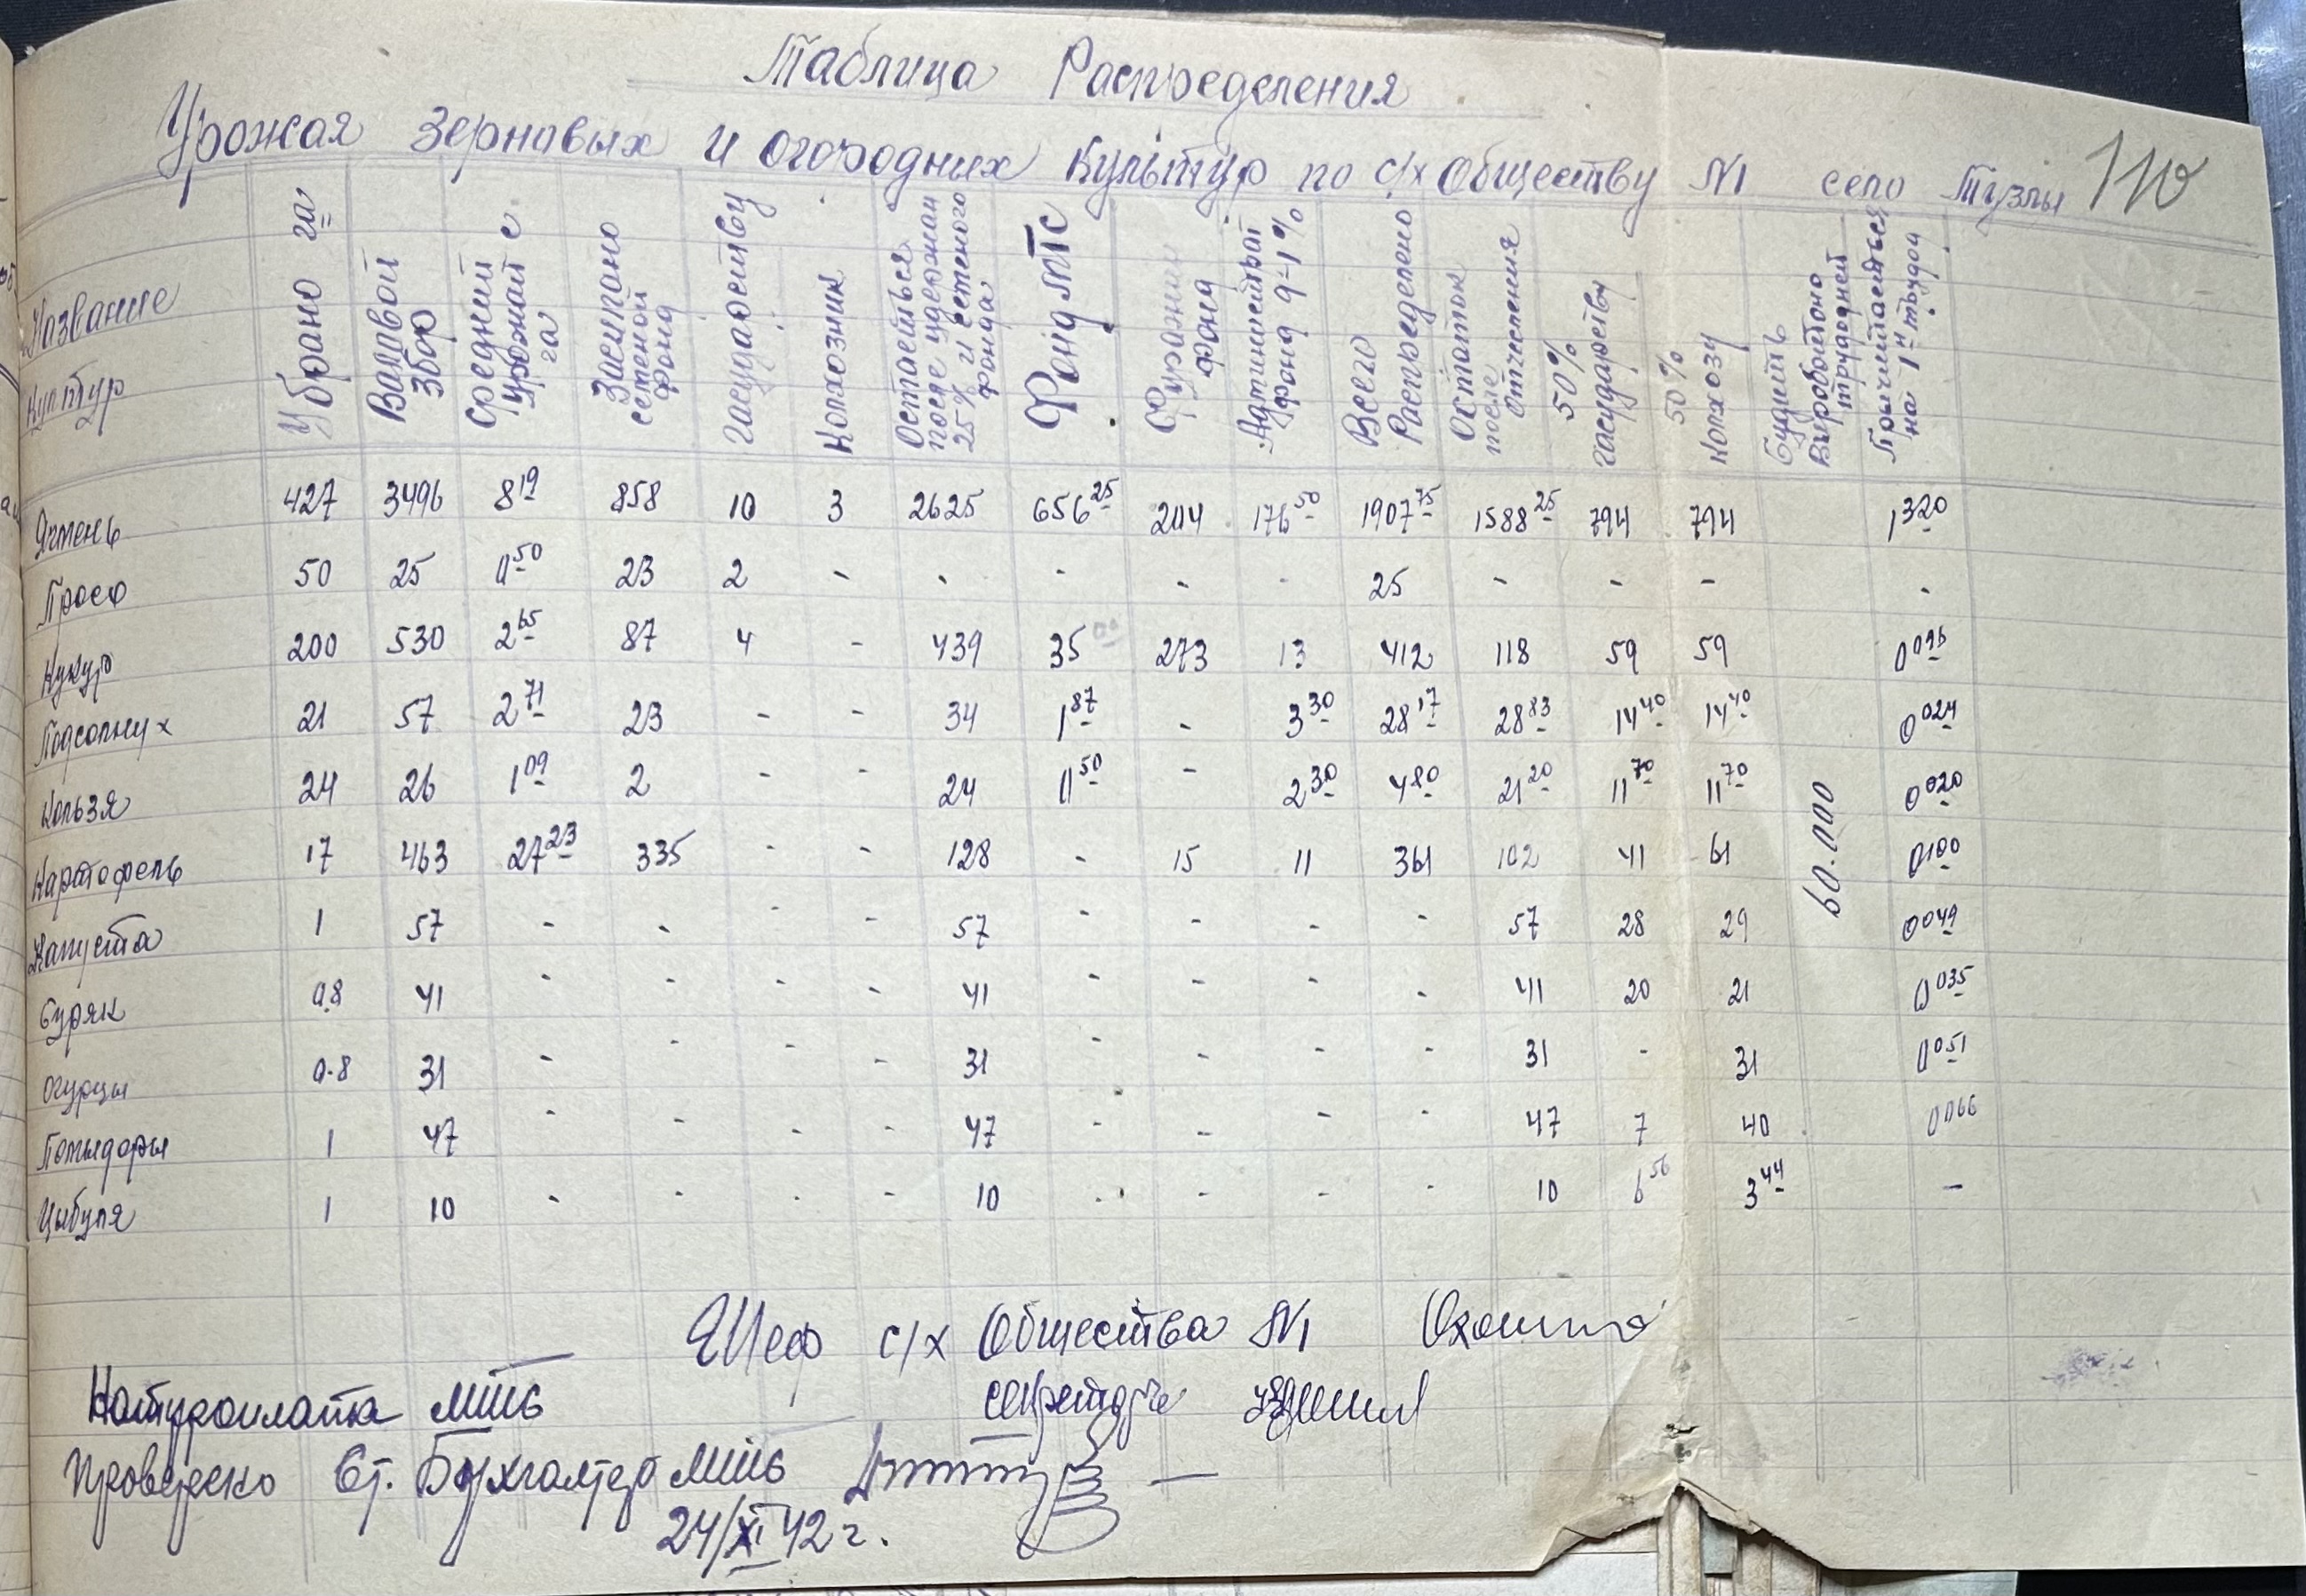 Таблица Распределения
Урожая Зерновых и огородних Культур по с/х Обществу №1 село Тузлы 110
Название Культур | Убрано га | Валовой Збор | Средний Урожай с га | Засипано семеной фонд | государству | Колхозник | Остаеться после удержан 25% и семеного фонда | Фонд МТС | Фуражн фонд | Административ фонд 9-1% | Всего Распределено | Остаток после Отчесления | 50% государству | 50% Колхозу | будить Виработоно трудодней | Причитаеться на 1н трудод
Ячмень 427 3496 8 19 858 10 3 2625 656 25 204 176 50 1907 75 1588 25 794 794 1 320
Просо 50 25 0 50 23 2 - - - - - 25 - - - -
Кукур 200 530 2 65 87 4 - 439 35 00 273 13 412 118 59 59 0 096
Подсолнух 21 57 2 71 23 - - 34 1 87 - 3 30 28 17 28 83 14 40 14 40 0 024
Кользя 24 26 1 09 2 - - 24 0 50 - 2 30 4 80 21 20 11 70 11 70 0 020
Картофель 17 463 27 23 335 - - 128 - 15 11 361 102 41 61 60.000 0 100
Капуста 1 57 - - - - 57 - - - - 57 28 29 0 049
Буряк 0.8 41 - - - - 41 - - - - 41 20 21 0 035
Огурцы 0.8 31 - - - - 31 - - - - 31 - 31 0 051
Помыдоры 1 47 - - - - 47 - - - - 47 7 40 0 066
Цыбуля 1 10 - - - - 10 - - - - 10 6 56 3 44 -
Шеф с/х Общества №1
Натуроплата МТС секретарь
Проверено Ст. Бухгалтер МТС
24/XI 42 г.